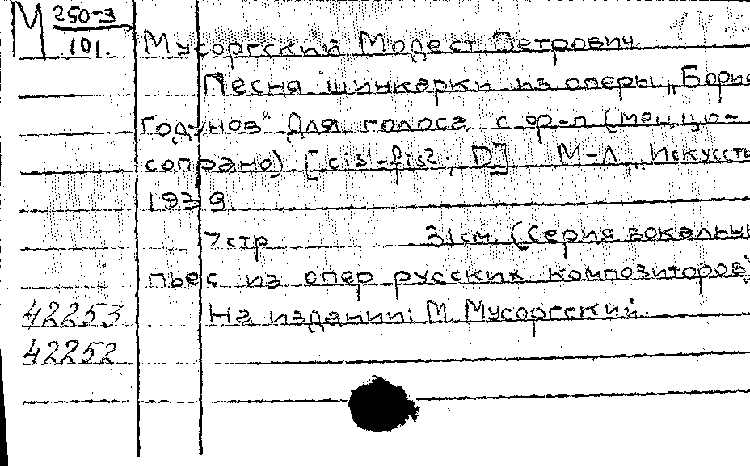 М 250-3
101. Мусоргский Модест Петрович
Песня шинкарки из оперы „Борис
Годунов" Для голоса с ф-п (меццо-
сопрано) [cis¹-fis²; D] М-Л „Искусств
1939
7 стр 31 см. (Серия вокальны
пьес из опер русских композиторов)
42253 На издании: М. Мусоргский
42252